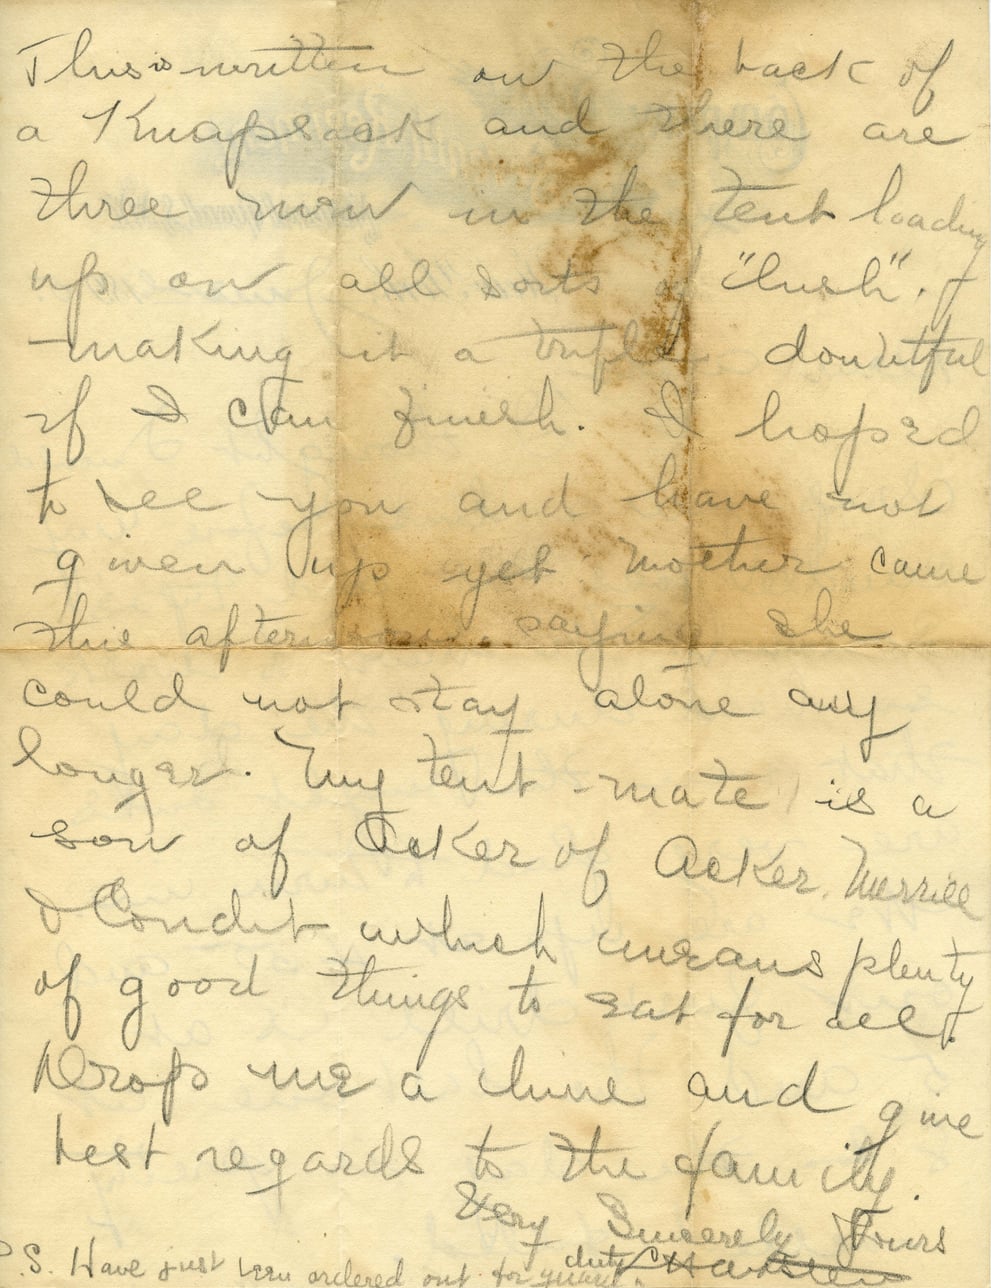 This is written on the back of
a Knapsack and there are
three men in the tent loading
up on all sorts of "lush".
making it a triple doubtful
if I can finish. I hoped
to see you and have not
given up yet mother came
this afternoon saying she
could not stay alone any
longer. My tent mate is a
son of Acker of Acker, Merrill
& Condit which means plenty
of good things to eat for all.
Drop me a line and give
best regards to the family.
Very Sincerely Yours
P.S. Have just been ordered out for guard duty